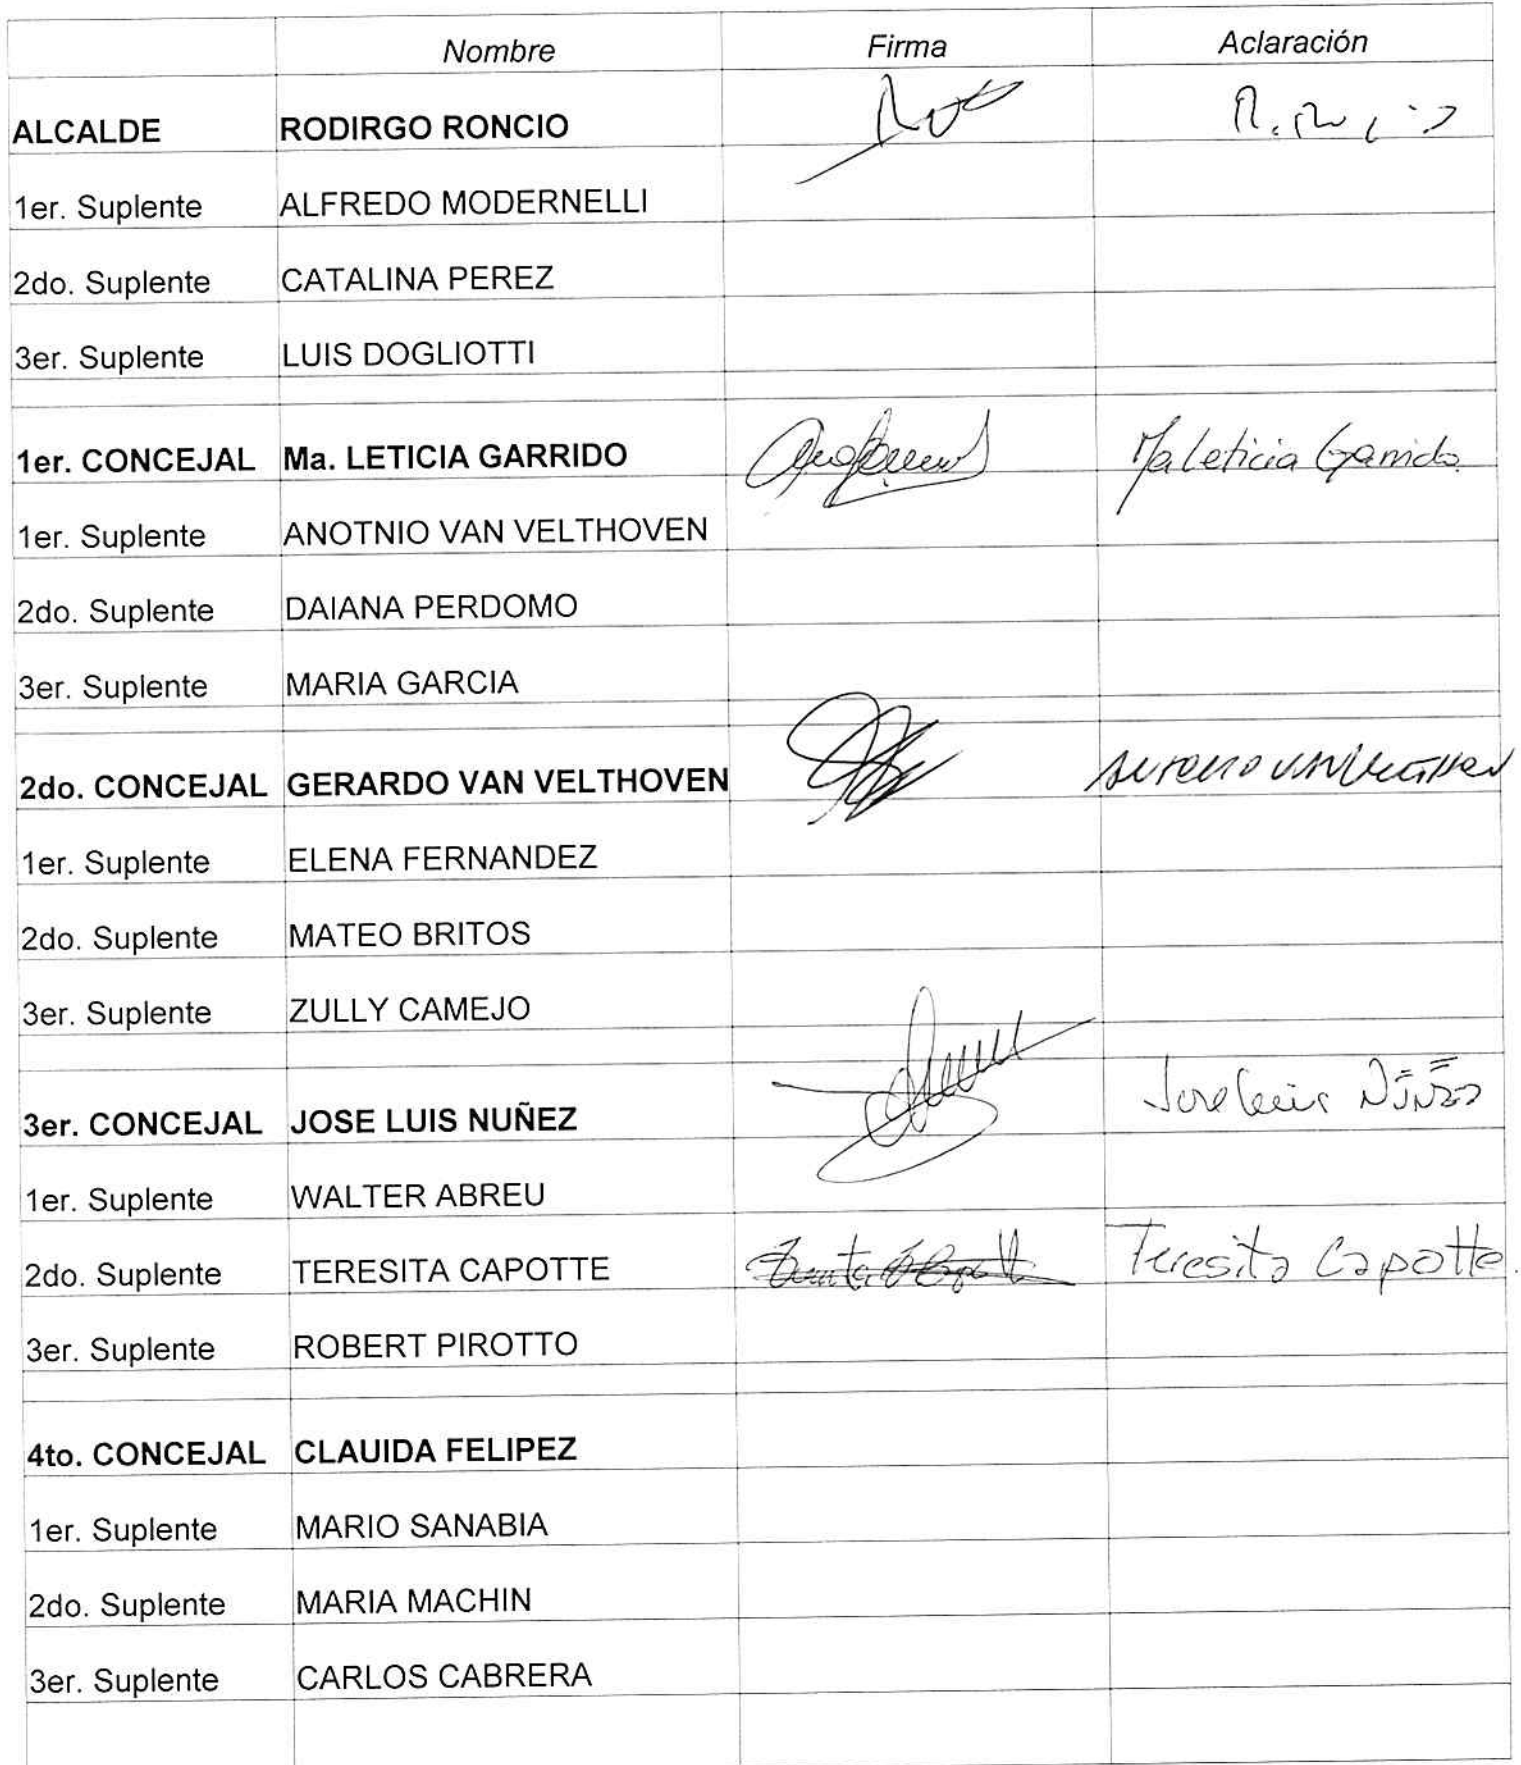 Nombre Firma Aclaración
ALCALDE RODIRGO RONCIO
1er. Suplente ALFREDO MODERNELLI
2do. Suplente CATALINA PEREZ
3er. Suplente LUIS DOGLIOTTI
1er. CONCEJAL Ma. LETICIA GARRIDO Ma Leticia Garrido
1er. Suplente ANOTNIO VAN VELTHOVEN
2do. Suplente DAIANA PERDOMO
3er. Suplente MARIA GARCIA
2do. CONCEJAL GERARDO VAN VELTHOVEN
1er. Suplente ELENA FERNANDEZ
2do. Suplente MATEO BRITOS
3er. Suplente ZULLY CAMEJO
3er. CONCEJAL JOSE LUIS NUÑEZ Jose Luis NÚÑEZ
1er. Suplente WALTER ABREU
2do. Suplente TERESITA CAPOTTE Teresita Capotte.
3er. Suplente ROBERT PIROTTO
4to. CONCEJAL CLAUIDA FELIPEZ
1er. Suplente MARIO SANABIA
2do. Suplente MARIA MACHIN
3er. Suplente CARLOS CABRERA